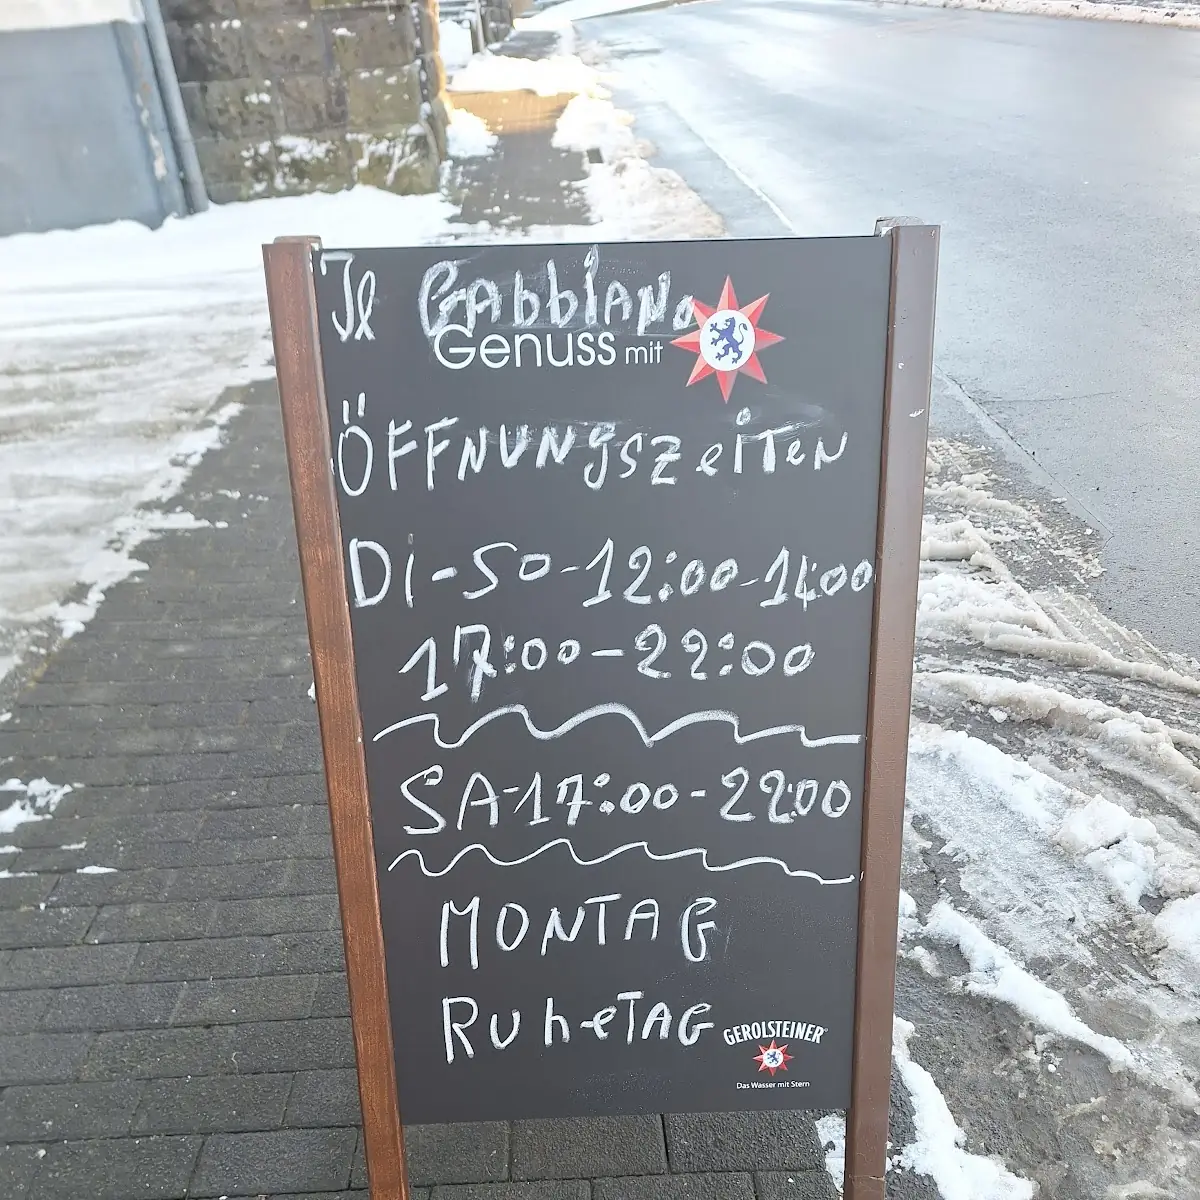 Il Gabbiano
Genuss mit
ÖFFNUNgSZeiTeN
Di-So-12:00-14:00
17:00-22:00
SA-17:00-22:00
MONTAG
RuheTAG
GEROLSTEINER®
Das Wasser mit Stern